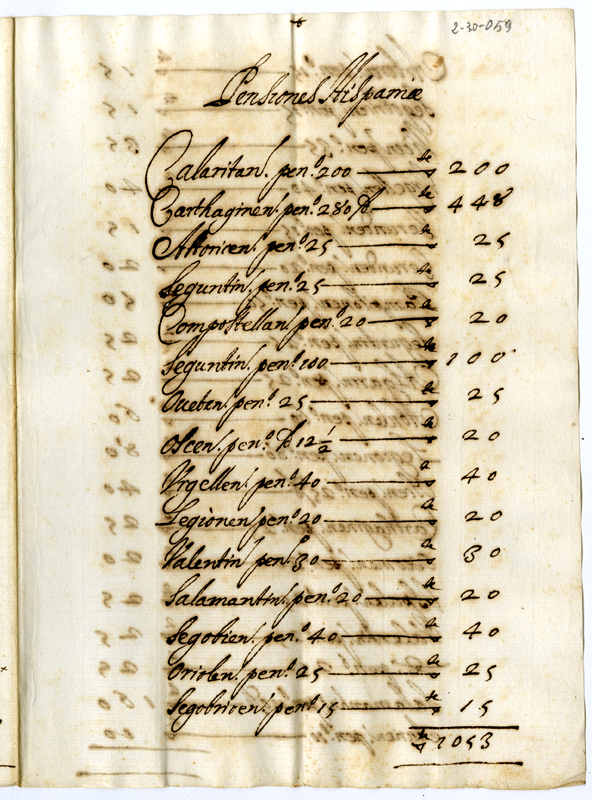 2-30-059
Pensiones Hispaniæ
Calaritan. pen.º 200 — 200
Carthaginen. pen.º 280 — 448
Astoricen. pen.º 25 — 25
Seguntin. pen.º 25 — 25
Compostellan. pen.º 20 — 20
Seguntin. pen.º 100 — 100
Oueten. pen.º 25 — 25
Oscen. pen.º 12 1/2 — 20
Vrgellen. pen.º 40 — 40
Legionen. pen.º 20 — 20
Valentin. pen.º 30 — 30
Salamantin. pen.º 20 — 20
Segobien. pen.º 40 — 40
Oriolen. pen.º 25 — 25
Segobricen. pen.º 15 — 15
1053